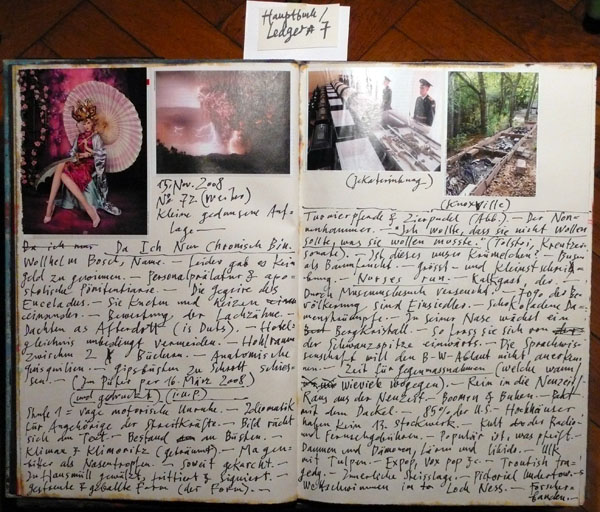 Hauptbuch/
Ledger# 7
15. Nov. 2008
No 72 (weiter)
Kleine gedunsene Auf-
lage —
Da ich nun Da Ich Nun Chronisch Bin.
Wollhelm Bosch, Name. — Leider gab es kein
Geld zu gewinnen. — Personalprälatur & apo-
stolische Pönitentiarie. — Die des
Enceladus. Sie Kneten und Reizen
einander. — Bewertung der Lachzähne. —
Dachten als Afterdott (is Dats). — Hotel-
gleichnis unbedingt vermeiden. — Hohlraum
zwischen 2 Büchern. — Anatomische
— Gipsbüsten zu Schrott schies-
sen. — (Im Puffer per 16. März 2008)
(und gedruckt) (i.u.P.)
Stufe 1 = vage motorische Unruhe. — Idiomatik
für Angehörige der Streitkräfte. — Bild rächt
sich am Text. — Bestand an Büsten.
Klimax & Klimoritz (geträumt). — Magen-
bitter als Nasentropfen. — Soweit gekarcht. —
Intensmüll gewälzt, frittiert & signiert.
gestreute & geballte Form (der Form). —
(Jekaterinburg)
(Knoxville)
Turnierpferde & Zierpudel (Abb.). — Der Non-
nenhammer. — "Ich wollte, dass sie nicht wollen
sollte, was sie wollen musste." (Tolstoi, Kreutzer-
sonate). — Ist dieses unser Krümelchen? — Busen
als Baumfrucht. — Grösst- und Kleinstschrei-
bung. — Nurses run. — Kaltgast der
Durch Museumsbesuch versaut. — Fogo der Be-
völkerung und Einsiedler. — Schokofarbene Da-
menstrümpfe. — In seiner Nase wächst ein
Bergkristall. — So frass sie sich von
der Schwanzspitze einwärts. — Die Sprachwis-
senschaft will den B-W-Ablaut nicht anerken-
nen. — Zeit für Gegenmassnahmen (welche wann
wieviele wogegen). — Rein in die Neuzeit/
Raus aus der Neuzeit. — Boomen & Buken.
mit dem Dackel. — 85% der U.S.-Hochhäuser
haben kein 13. Stockwerk. — Kult der Radio-
und Fernsehgebühren. — Populär ist, was pfeift.
Daumen und Dämonen, Lärm und Libido. — Ulk
mit Tulpen. — Expop, Vox pop &c. — Trautish tra-
gedy. — Innerliche Reisslage. — Pictorial Undertow. —
Wettschwimmen im Loch Ness. — Forscher-
banden. —